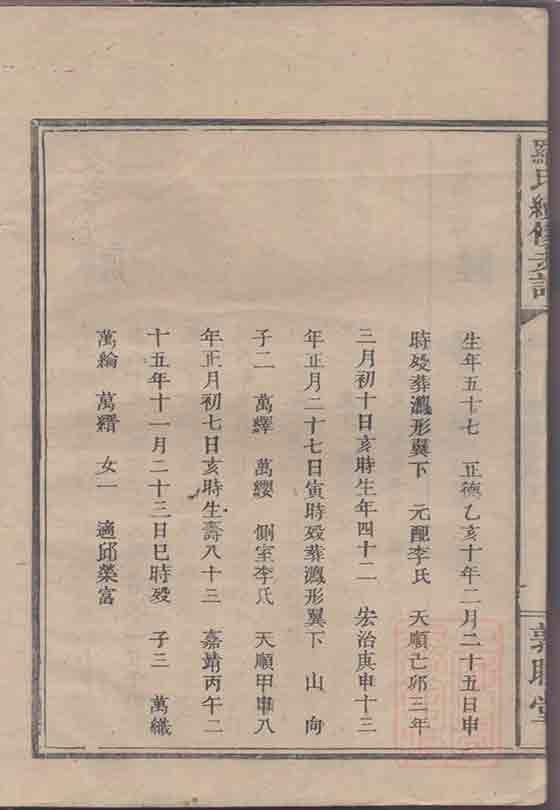 羅氏續修支譜
敦睦堂
生年五十七 正德乙亥十年二月二十五日申
時歿葬鸕形翼下 元配李氏 天順己卯三年
三月初十日亥時生年四十二 宏治庚申十三
年正月二十七日寅時歿葬鸕形翼下 山 向
子二 萬繹 萬纓 側室李氏 天順甲申八
年正月初七日亥時生壽八十三 嘉靖丙午二
十五年十一月二十三日巳時歿 子三 萬織
萬綸 萬縉 女一 適邱榮富